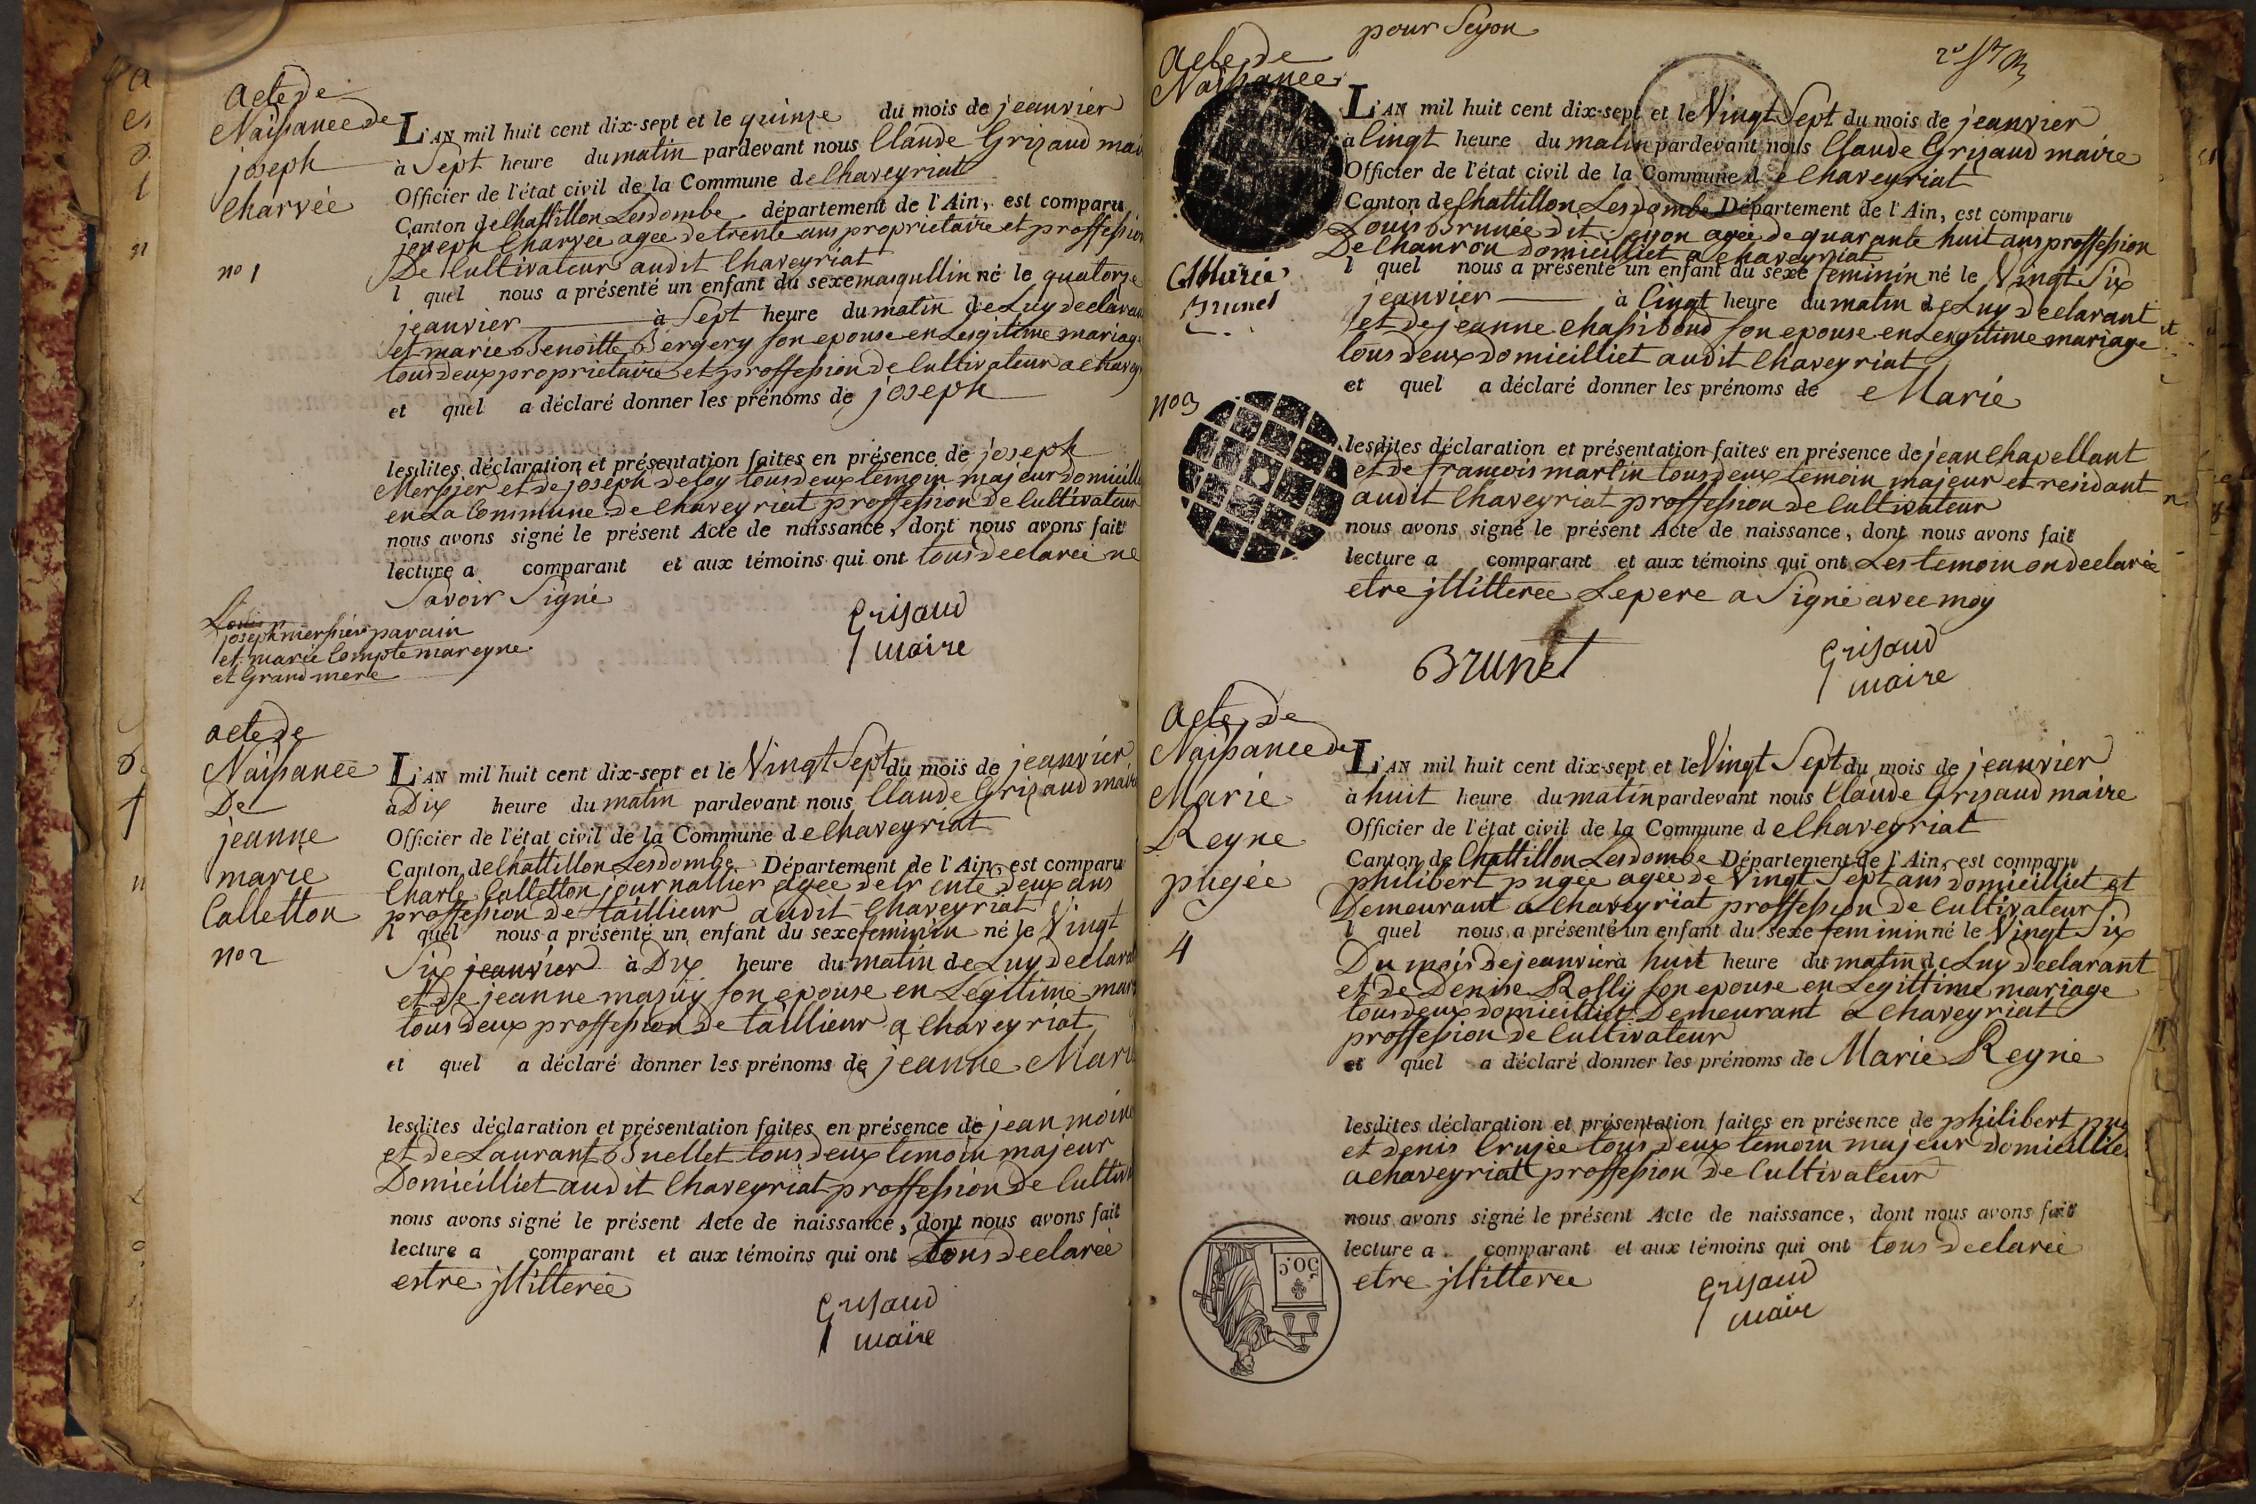 acte de
Naissance de
joseph
Charvée
no 1
L'AN mil huit cent dix-sept et le quinze du mois de jeanvier
à Sept heure du matin pardevant nous Claude Grizaud mai
Officier de l'état civil de la Commune de Chaveyriat
Canton de Chattillon Lesdombe département de l'Ain, est comparu
joseph Charvée agee de trente ans proprietaire et proffession
De Cultivateur audit Chaveyriat
l quel nous a présenté un enfant du sexe masqullin né le quatorze
jeanvier à Sept heure du matin de Luy declarant
et marie Benoitte Bergery son epouse en Lesgitime mariage
tous deux proprietaire et proffession de Cultivateur a Chavey
et quel a déclaré donner les prénoms de joseph
lesdites déclaration et présentation faites en présence de joseph
Merssier et de joseph deloy tous deux temoin majeur domicille
en La Commune de Chaveyriat proffession de Cultivateur
nous avons signé le présent Acte de naissance, dont nous avons fait
lecture a comparant et aux témoins qui ont tous declareé ne
Savoir Signé
Grisaud
maire
joseph merssier parain
et marie Compte mareyne
et Grand mere
acte de
Naissance
De
jeanne
marie
Calletton
no 2
L'AN mil huit cent dix-sept et le Vingt Sept du mois de jeanvier
à Dix heure du matin pardevant nous Claude Grizaud mair
Officier de l'état civil de la Commune de Chaveyriat
Canton de Chattillon Lesdombe Département de l'Ain, est comparu
Charle Calletton journallier agee de trente deux ans
proffession de taillieur audit Chaveyriat
l quel nous a présenté un enfant du sexe feminin né le Vingt
Six jeanvier à Dix heure du matin de Luy declarat
et de jeanne mazuy son epouse en Legitime mar
tous deux proffession de taillieur a Chaveyriat
et quel a déclaré donner les prénoms de jeanne Mari
lesdites déclaration et présentation faites en présence de jean moine
et de Laurant Buellet tous deux temoin majeur
Domicilliet audit Chaveyriat proffession de Cultiv
nous avons signé le présent Acte de naissance, dont nous avons fait
lecture a comparant et aux témoins qui ont tous declareé
estre jllitereé
Grisaud
maire
pour Seyon
acte de
Naissance
Marie
Brunet
no 3
L'AN mil huit cent dix-sept et le Vingt Sept du mois de jeanvier
à Cinqt heure du matin pardevant nous Claude Grizaud maire
Officier de l'état civil de la Commune de Chaveyriat
Canton de Chattillon Lesdombe Département de l'Ain, est comparu
Louis Brunée dit Seyon agée de quarante huit ans proffession
De Chanron domicilliet a Chaveyriat
l quel nous a présenté un enfant du sexe feminin né le Vingt Six
jeanvier à Cinqt heure du matin de Luy declarant
et de jeanne Chassiboud son epouse en Lesgitime mariage
tous deux domicilliet audit Chaveyriat
et quel a déclaré donner les prénoms de Marie
lesdites déclaration et présentation faites en présence de jean Chapellant
et de francois martin tous deux temoin majeur et residant
audit Chaveyriat proffession de Cultivateur
nous avons signé le présent Acte de naissance, dont nous avons fait
lecture a comparant et aux témoins qui ont Les temoin on declareé
etre jllittereé Le pere a Signé avec moy
Brunet
Grisaud
maire
acte de
Naissance de
Marie
Reyne
pugée
4
L'AN mil huit cent dix-sept et le Vingt Sept du mois de jeanvier
à huit heure du matin pardevant nous Claude Grizaud maire
Officier de l'état civil de la Commune de Chaveyriat
Canton de Chattillon Lesdombe Département de l'Ain, est comparu
philibert pugée agee de Vingt Sept ans domicilliet et
Demeurant a Chaveyriat proffession de Cultivateur
l quel nous a présenté un enfant du sexe feminin né le Vingt Six
Du mois de jeanvier à huit heure du matin de Luy declarant
et de Denise Rolly son epouse en Legittime mariage
tous deux domicilliet Demeurant a Chaveyriat
proffession de Cultivateur
et quel a déclaré donner les prénoms de Marie Reyne
lesdites déclaration et présentation faites en présence de philibert pu
et denis Crujée tous deux temoin majeur domicillie
a Chaveyriat proffession de Cultivateur
nous avons signé le présent Acte de naissance, dont nous avons fait
lecture a comparant et aux témoins qui ont tous declareé
etre jllittereé
Grisaud
mair
50c